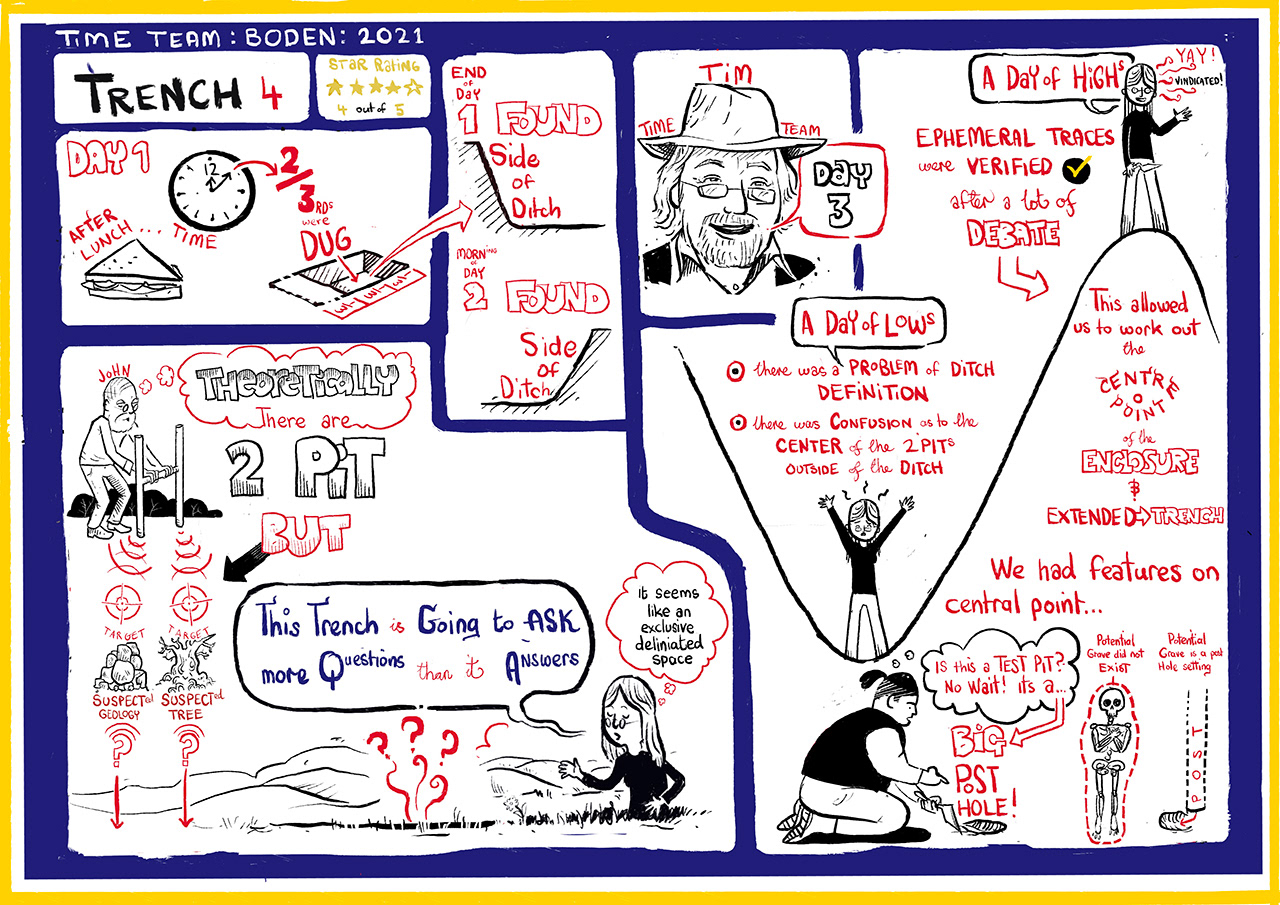 TIME TEAM: BODEN: 2021
TRENCH 4
STAR RATING
4 out of 5
DAY 1
12
2/3RDs
were
DUG
AFTER
LUNCH... TIME
END
of
DAY
1 FOUND
Side
of
Ditch
MORNING
of
DAY
2 FOUND
Side
of
Ditch
JOHN
THEORETICALLY
There are
2 PIT
BUT
TARGET
TARGET
SUSPECTed
GEOLOGY
SUSPECTed
TREE
?
?
This Trench is Going to ASK
more Questions than it Answers
? ? ?
it seems
like an
exclusive
deliniated
space
TIM
TIME TEAM
DAY
3
A DAY of LOWs
there was a PROBLEM of DITCH
DEFINITION
there was CONFUSION as to the
CENTER of the 2 PITs
OUTSIDE of the DITCH
A DAY of HIGHs
YAY!
VINDICATED!
EPHEMERAL TRACES
were VERIFIED
after a lot of
DEBATE
This allowed
us to work out
the
CENTRE
POINT
of the
ENCLOSURE
&
EXTENDED TRENCH
We had features on
central point...
IS this a TEST PIT?
No Wait! its a...
BIG
POST
HOLE!
Potential
Grave did not
Exist
Potential
Grave is a post
Hole setting
POST